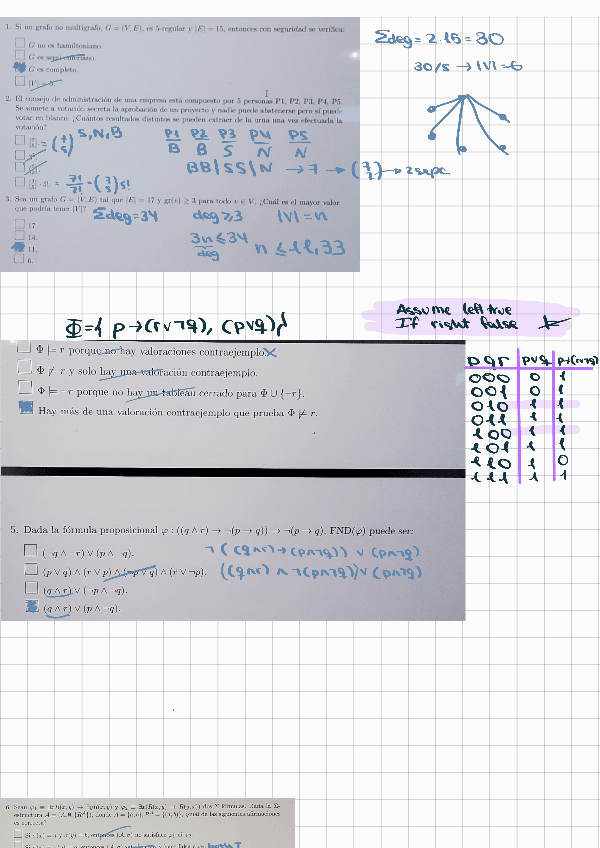 1. Si un grafo no multigrafo, G = (V, E), es 5-regular y |E| = 15, entonces con seguridad se verifica:
G no es hamiltoniano.
G es semi-euleriano.
G es completo.
|V| = 5.
Σdeg = 2·15 = 30
30/5 → |V| = 6
2. El consejo de administración de una empresa está compuesto por 5 personas P1, P2, P3, P4, P5.
Se somete a votación secreta la aprobación de un proyecto y nadie puede abstenerse pero sí puede
votar en blanco. ¿Cuántos resultados distintos se pueden extraer de la urna una vez efectuada la
votación?
S, N, B
P1 P2 P3 P4 P5
B B S N N
BB|SS|N → 7 → (7 2) → 2 sepc
= (7 5)
· 5! = 7!/2! = (7 5) 5!
3. Sea un grafo G = (V, E) tal que |E| = 17 y gr(v) ≥ 3 para todo v ∈ V. ¿Cuál es el mayor valor
que podría tener |V|?
Σdeg = 34 deg ≥ 3 |V| = n
17
14.
11.
6.
3n ≤ 34 n ≤ 11,33
deg
Φ = { p → (r ∨ ¬q), (p ∨ q) }
Assume left true
If right false ⊭
Φ ⊨ r porque no hay valoraciones contraejemplo.
Φ ⊭ r y solo hay una valoración contraejemplo.
Φ ⊨ ¬r porque no hay un tableau cerrado para Φ ∪ {¬r}.
Hay más de una valoración contraejemplo que prueba Φ ⊭ r.
p q r p∨q p→(r∨¬q)
0 0 0 0 1
0 0 1 0 1
0 1 0 1 1
0 1 1 1 1
1 0 0 1 1
1 0 1 1 1
1 1 0 1 0
1 1 1 1 1
5. Dada la fórmula proposicional φ : ((q ∧ r) → ¬(p → q)) → ¬(p → q), FND(φ) puede ser:
(¬q ∧ ¬r) ∨ (p ∧ ¬q).
(p ∨ q) ∧ (r ∨ p) ∧ (¬p ∨ q) ∧ (r ∨ ¬p).
(q ∧ r) ∨ (¬p ∧ ¬q).
(q ∧ r) ∨ (p ∧ ¬q).
¬((q∧r) → (p∧¬q)) ∨ (p∧¬q)
((q∧r) ∧ ¬(p∧¬q)) ∨ (p∧¬q)